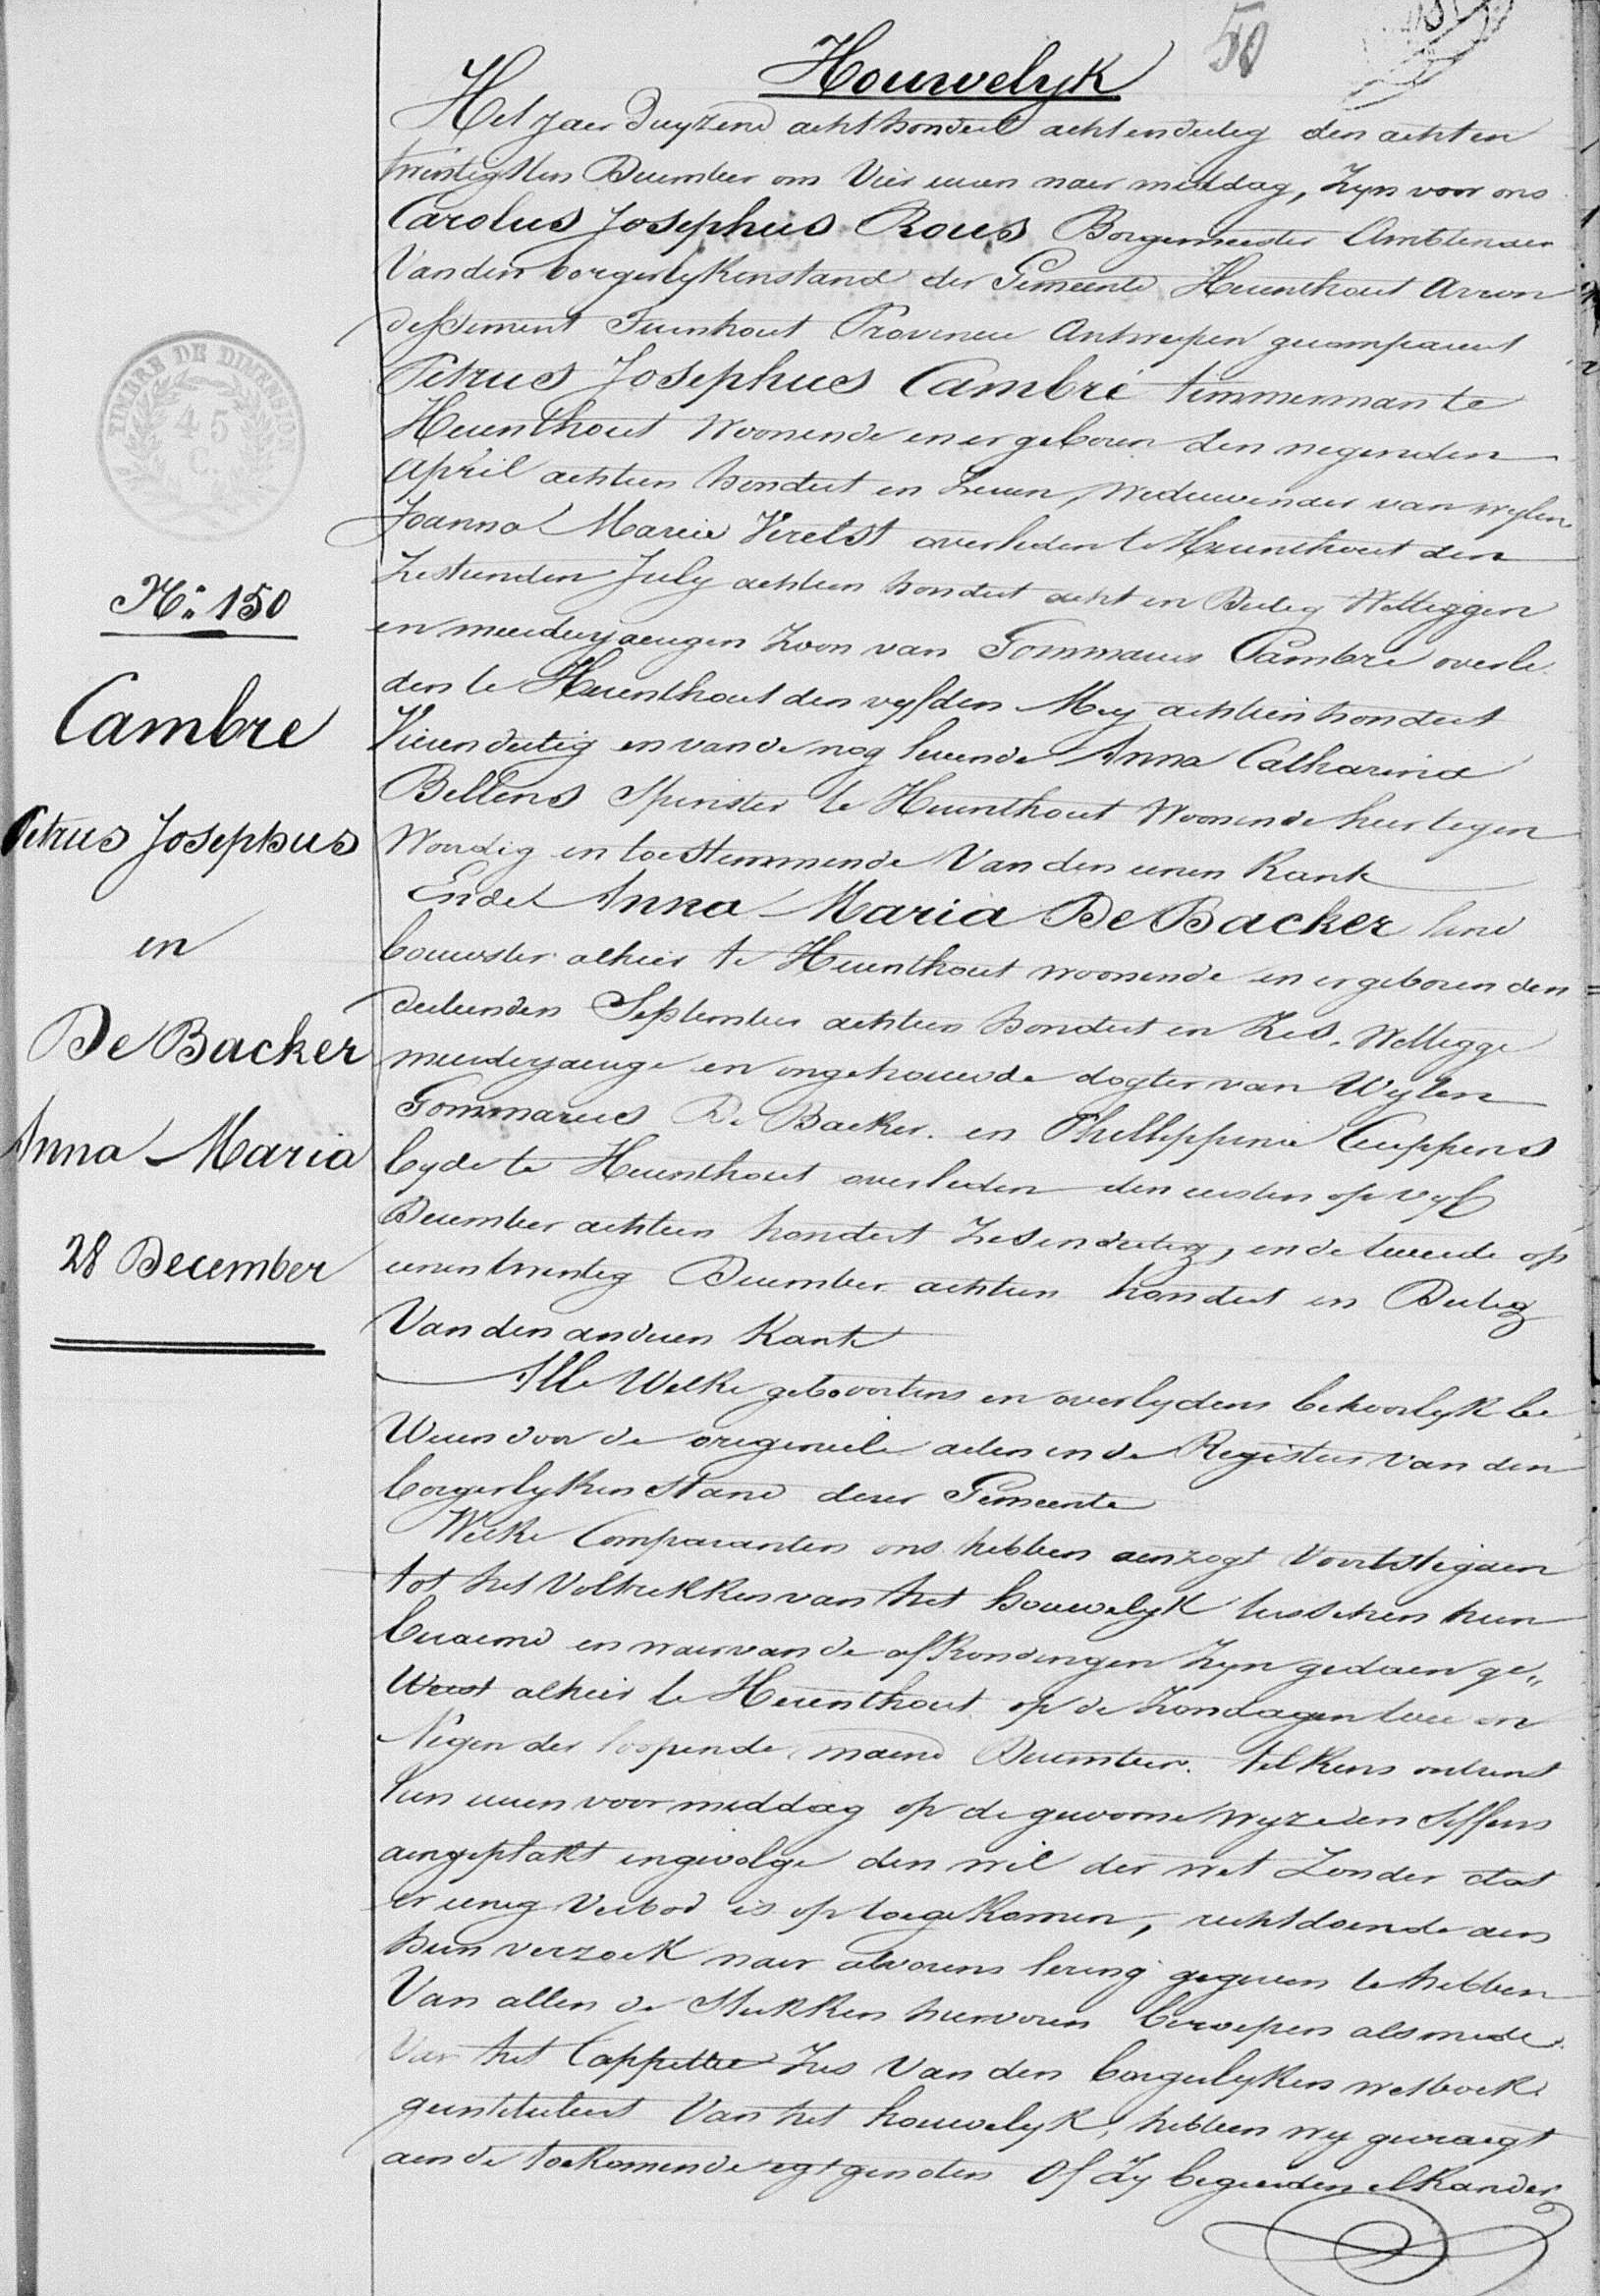 50
Houwelyk
Het jaer Duyzend acht hondert achtendertig den acht en
twintigsten December om Vier uuren naer middag, Zyn voor ons
Carolus Josephus Rous Borgemeester Ambtenaer
Vanden borgerlykenstand der Gemeente Heerenthout Arron
dissement Turnhout Provincie Antwerpen gecompareert
Petrus Josephus Cambré timmerman te
Heerenthout Woonende en er geboren den negenden
April achtien hondert en Zeven, Weduwenaer van wylen
Joanna Maria Verelst overleden te Heerenthout den
Zestienden July achtien hondert acht en Dertig Wettiggen
en meerderjaerigen Zoon van Gommarus Cambre overle
den te Heerenthout den vyfden Mey achtien hondert
Vierendertig en van de nog levende Anna Catharina
Bellens Spinster te Heerenthout Woonende hier tegen
Woordig en toestemmende Van den eenen Kant
Ende Anna Maria De Backer land
bouwster alhier te Heerenthout woonende en er geboren den
dertienden September achtien hondert en Zes. Wettigge
meerderjaerige en ongehouwde dogter van Wylen
Gommarus De Backer. en Phillippina Cuppens
beyde te Heerenthout overleden den eersten op vyf
December achtien hondert Zesendertig, en de tweede op
eenentwintig December achtien hondert en Dertig
Van den anderen Kant
Alle Welke geboortens en overlydens behoorlyk be
Weesen door de origineele acten in de Registers van den
borgerlyken Stand deser Gemeente
Welke Comparanten ons hebben aenzogt Voortstegaen
tot het Voltrekken van het houwelyk tusschen hun
beraemd en waervan de afkondingen Zyn gedaen ge„
Weest alhier te Heerenthout op de Zondagen twee en
Negen der loopende maend December. telkens ontrent
tien uuren voor middag op de gewoone Wyze en Effens
aengeplakt ingevolge den wil der wet Zonder dat
er eenig Verbod is op toegekomen, rechtdoende aen
hun verzoek naer alvorens lezing gegeven te hebben
Van allen de Stukken hiervoren beroepen alsmede
Van het Cappittel Zes Van den borgerlyken wetboek
geintituleert Van het houwelyk, hebben wy gevraegt
aen de toekomende egtgenoten Of Zy begeerden elkander
TIMBRE DE DIMENSION
45
C.
No. 150
Cambre
Petrus Josephus
en
De Backer
Anna Maria
28 December